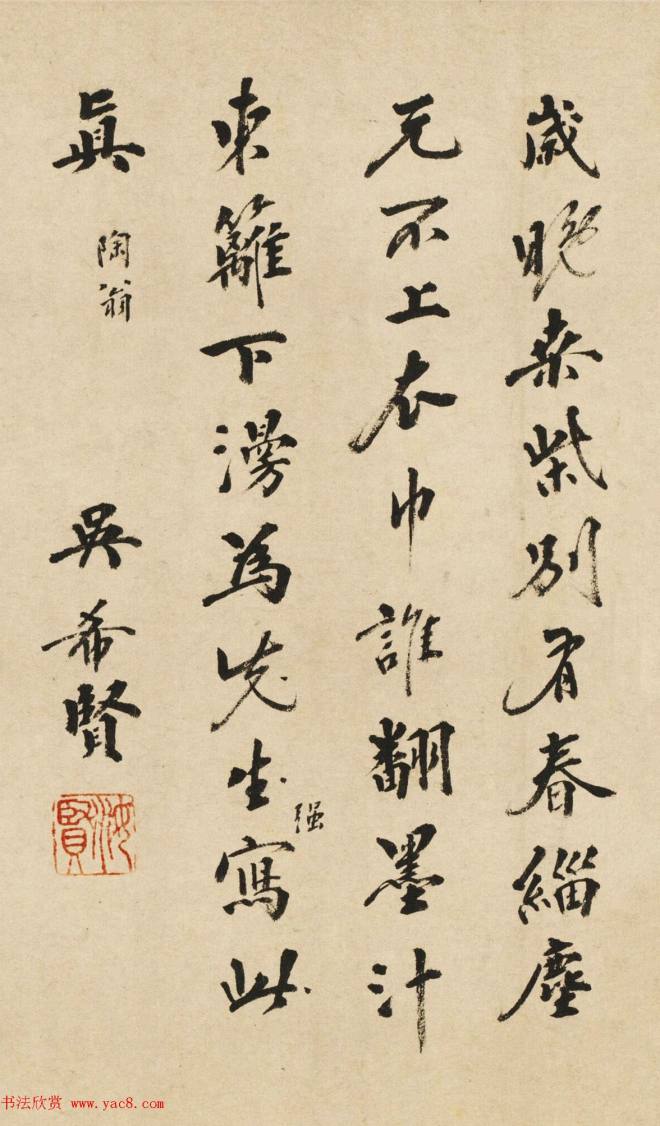 歲晚桑柴別有春緇塵
元不上衣巾誰翻墨汁
東籬下漫為先生寫此
强
眞 陶翁 吳希賢
汝賢
书法欣赏 www.yac8.com